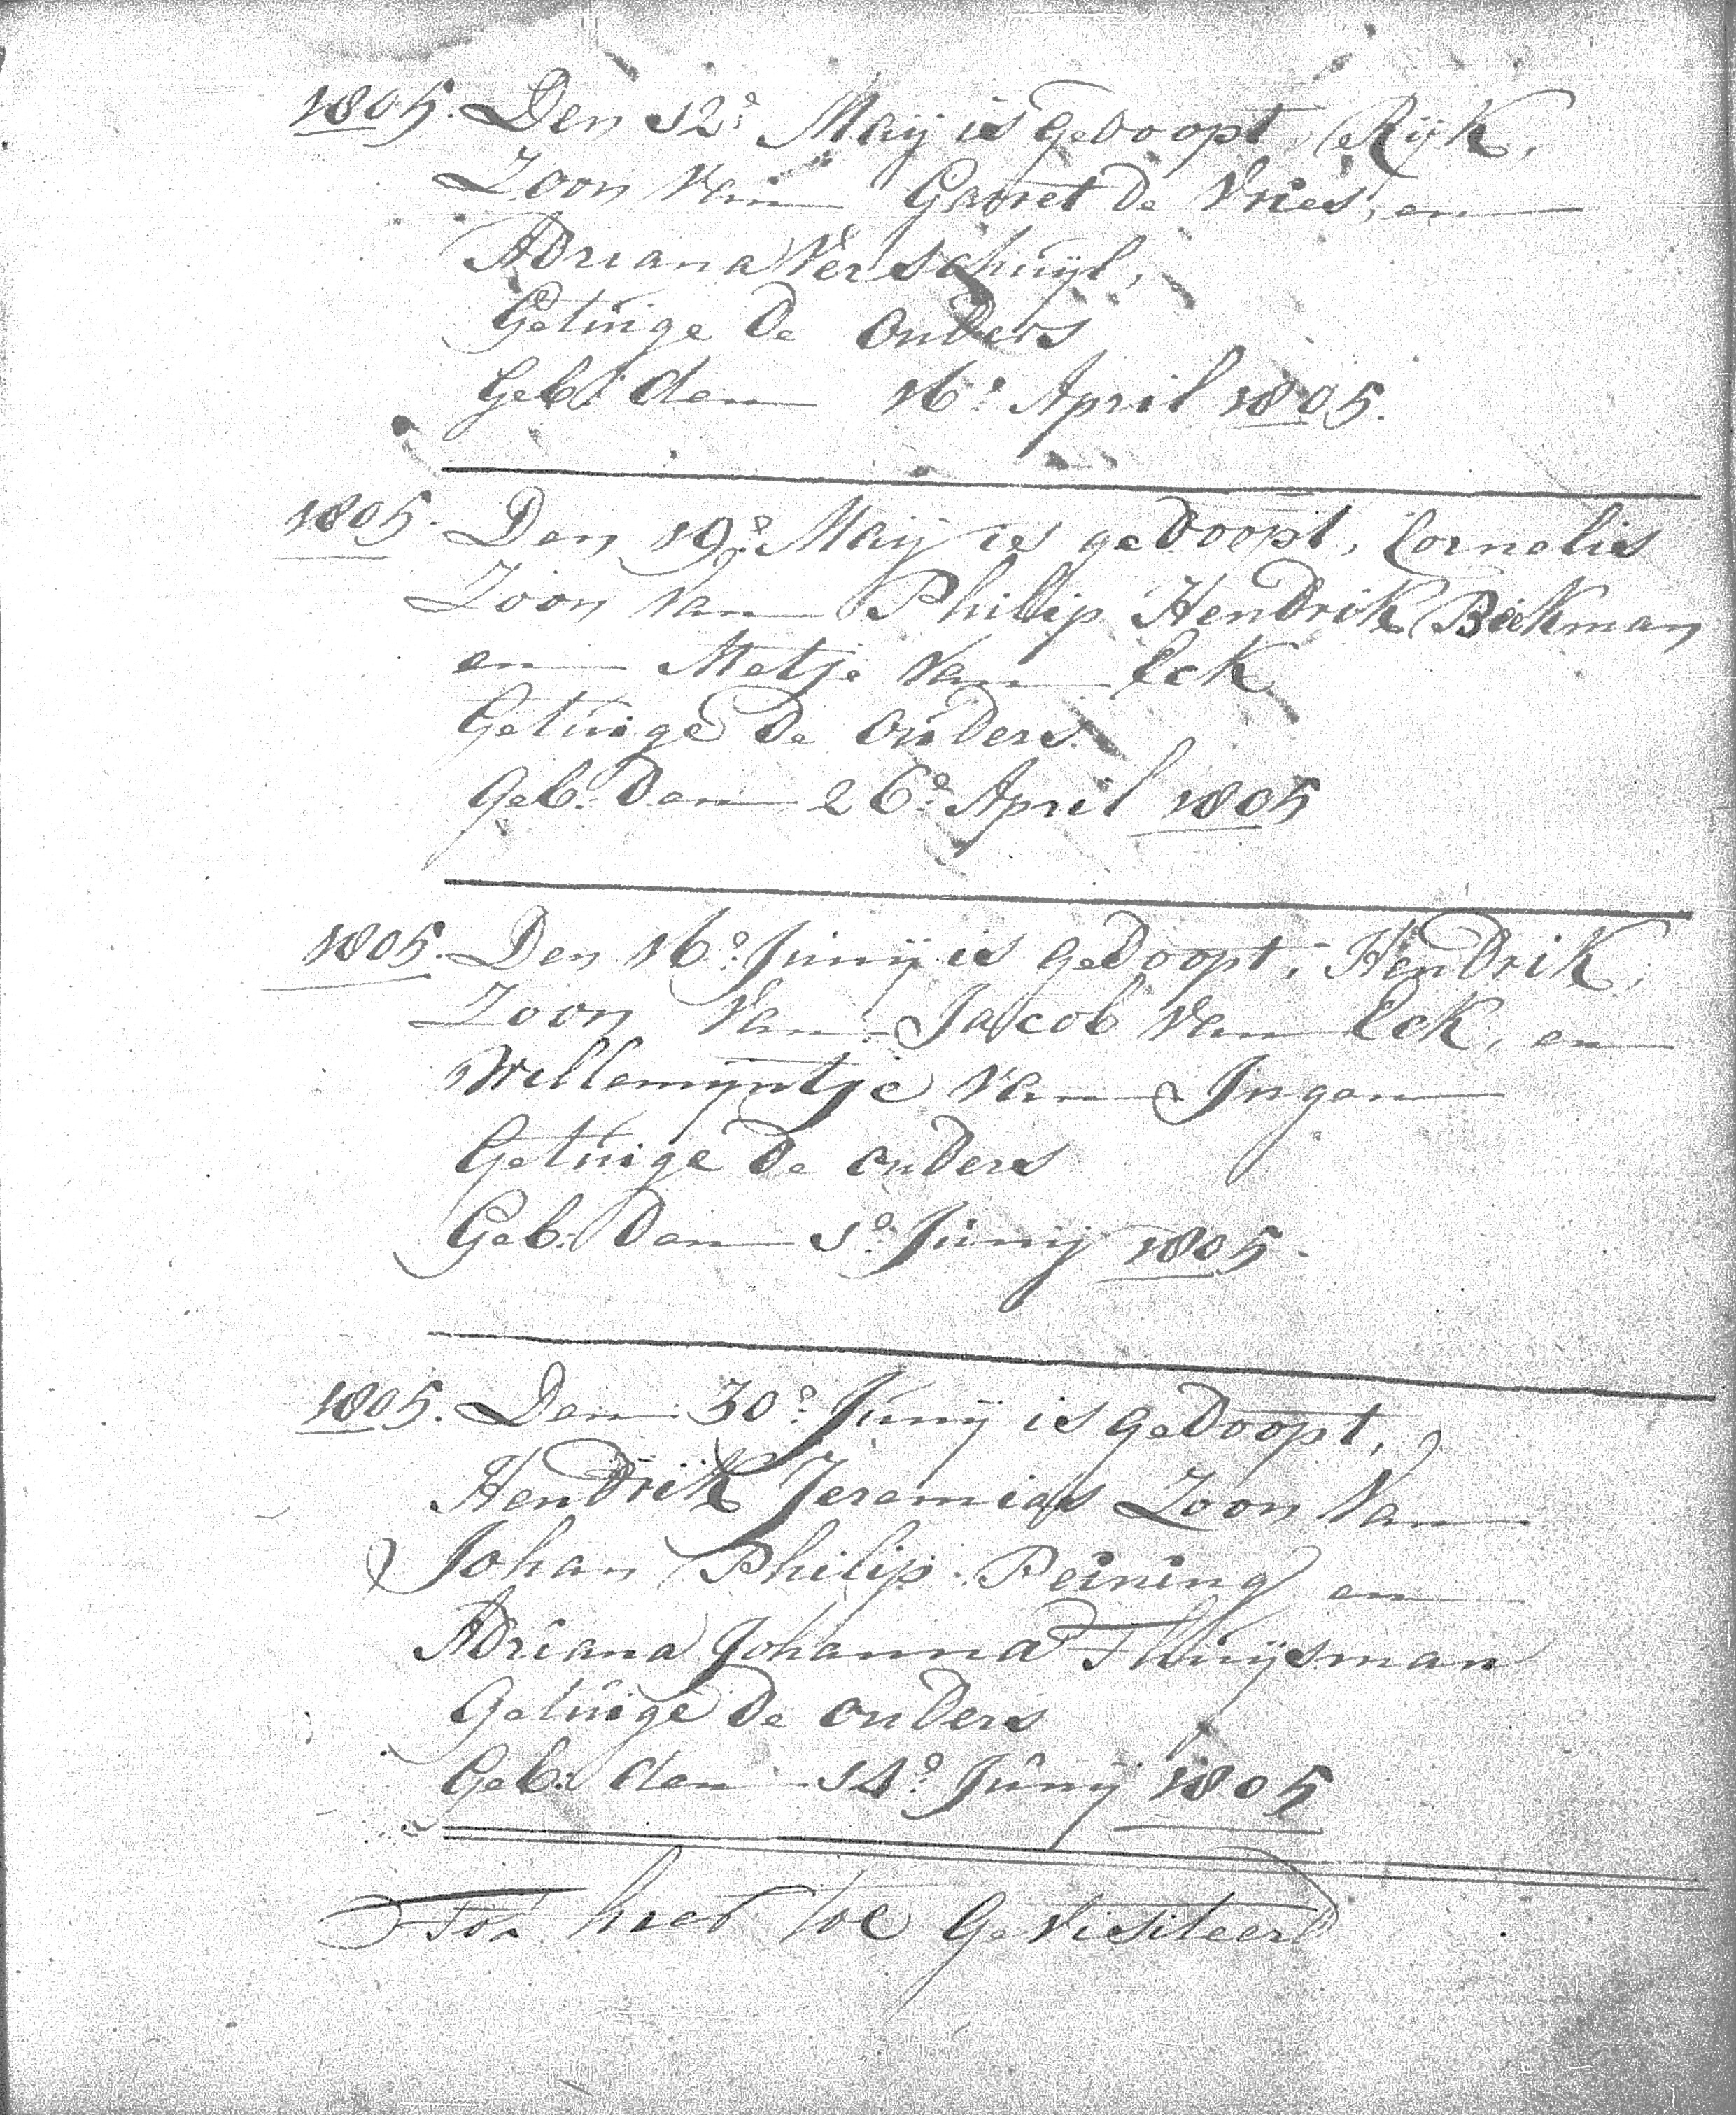 1805. Den 12e Maij is gedoopt, Rijk,
Zoon van Garret de Vries, en
Adriana Verschuijl,
Getuige de ouders
Geb. den 16e April 1805.
1805. Den 19e Maij is gedoopt, Cornelis
Zoon van Philip Hendrik Beekman
en Metje van Eck
Getuige de ouders
Geb. den 26e April 1805
1805. Den 16e Junij is gedoopt, Hendrik,
Zoon van Jacob van Eck, en
Willemijntje van Ingen
Getuige de ouders
Geb. den 1e Junij 1805.
1805. Den 30e Junij is gedoopt,
Hendrik Jeremias Zoon van
Johan Philip Peining en
Adriana Johanna Thuijsman
Getuige de ouders
Geb. den 14e Junij 1805
Tot hier toe Gevisiteerd